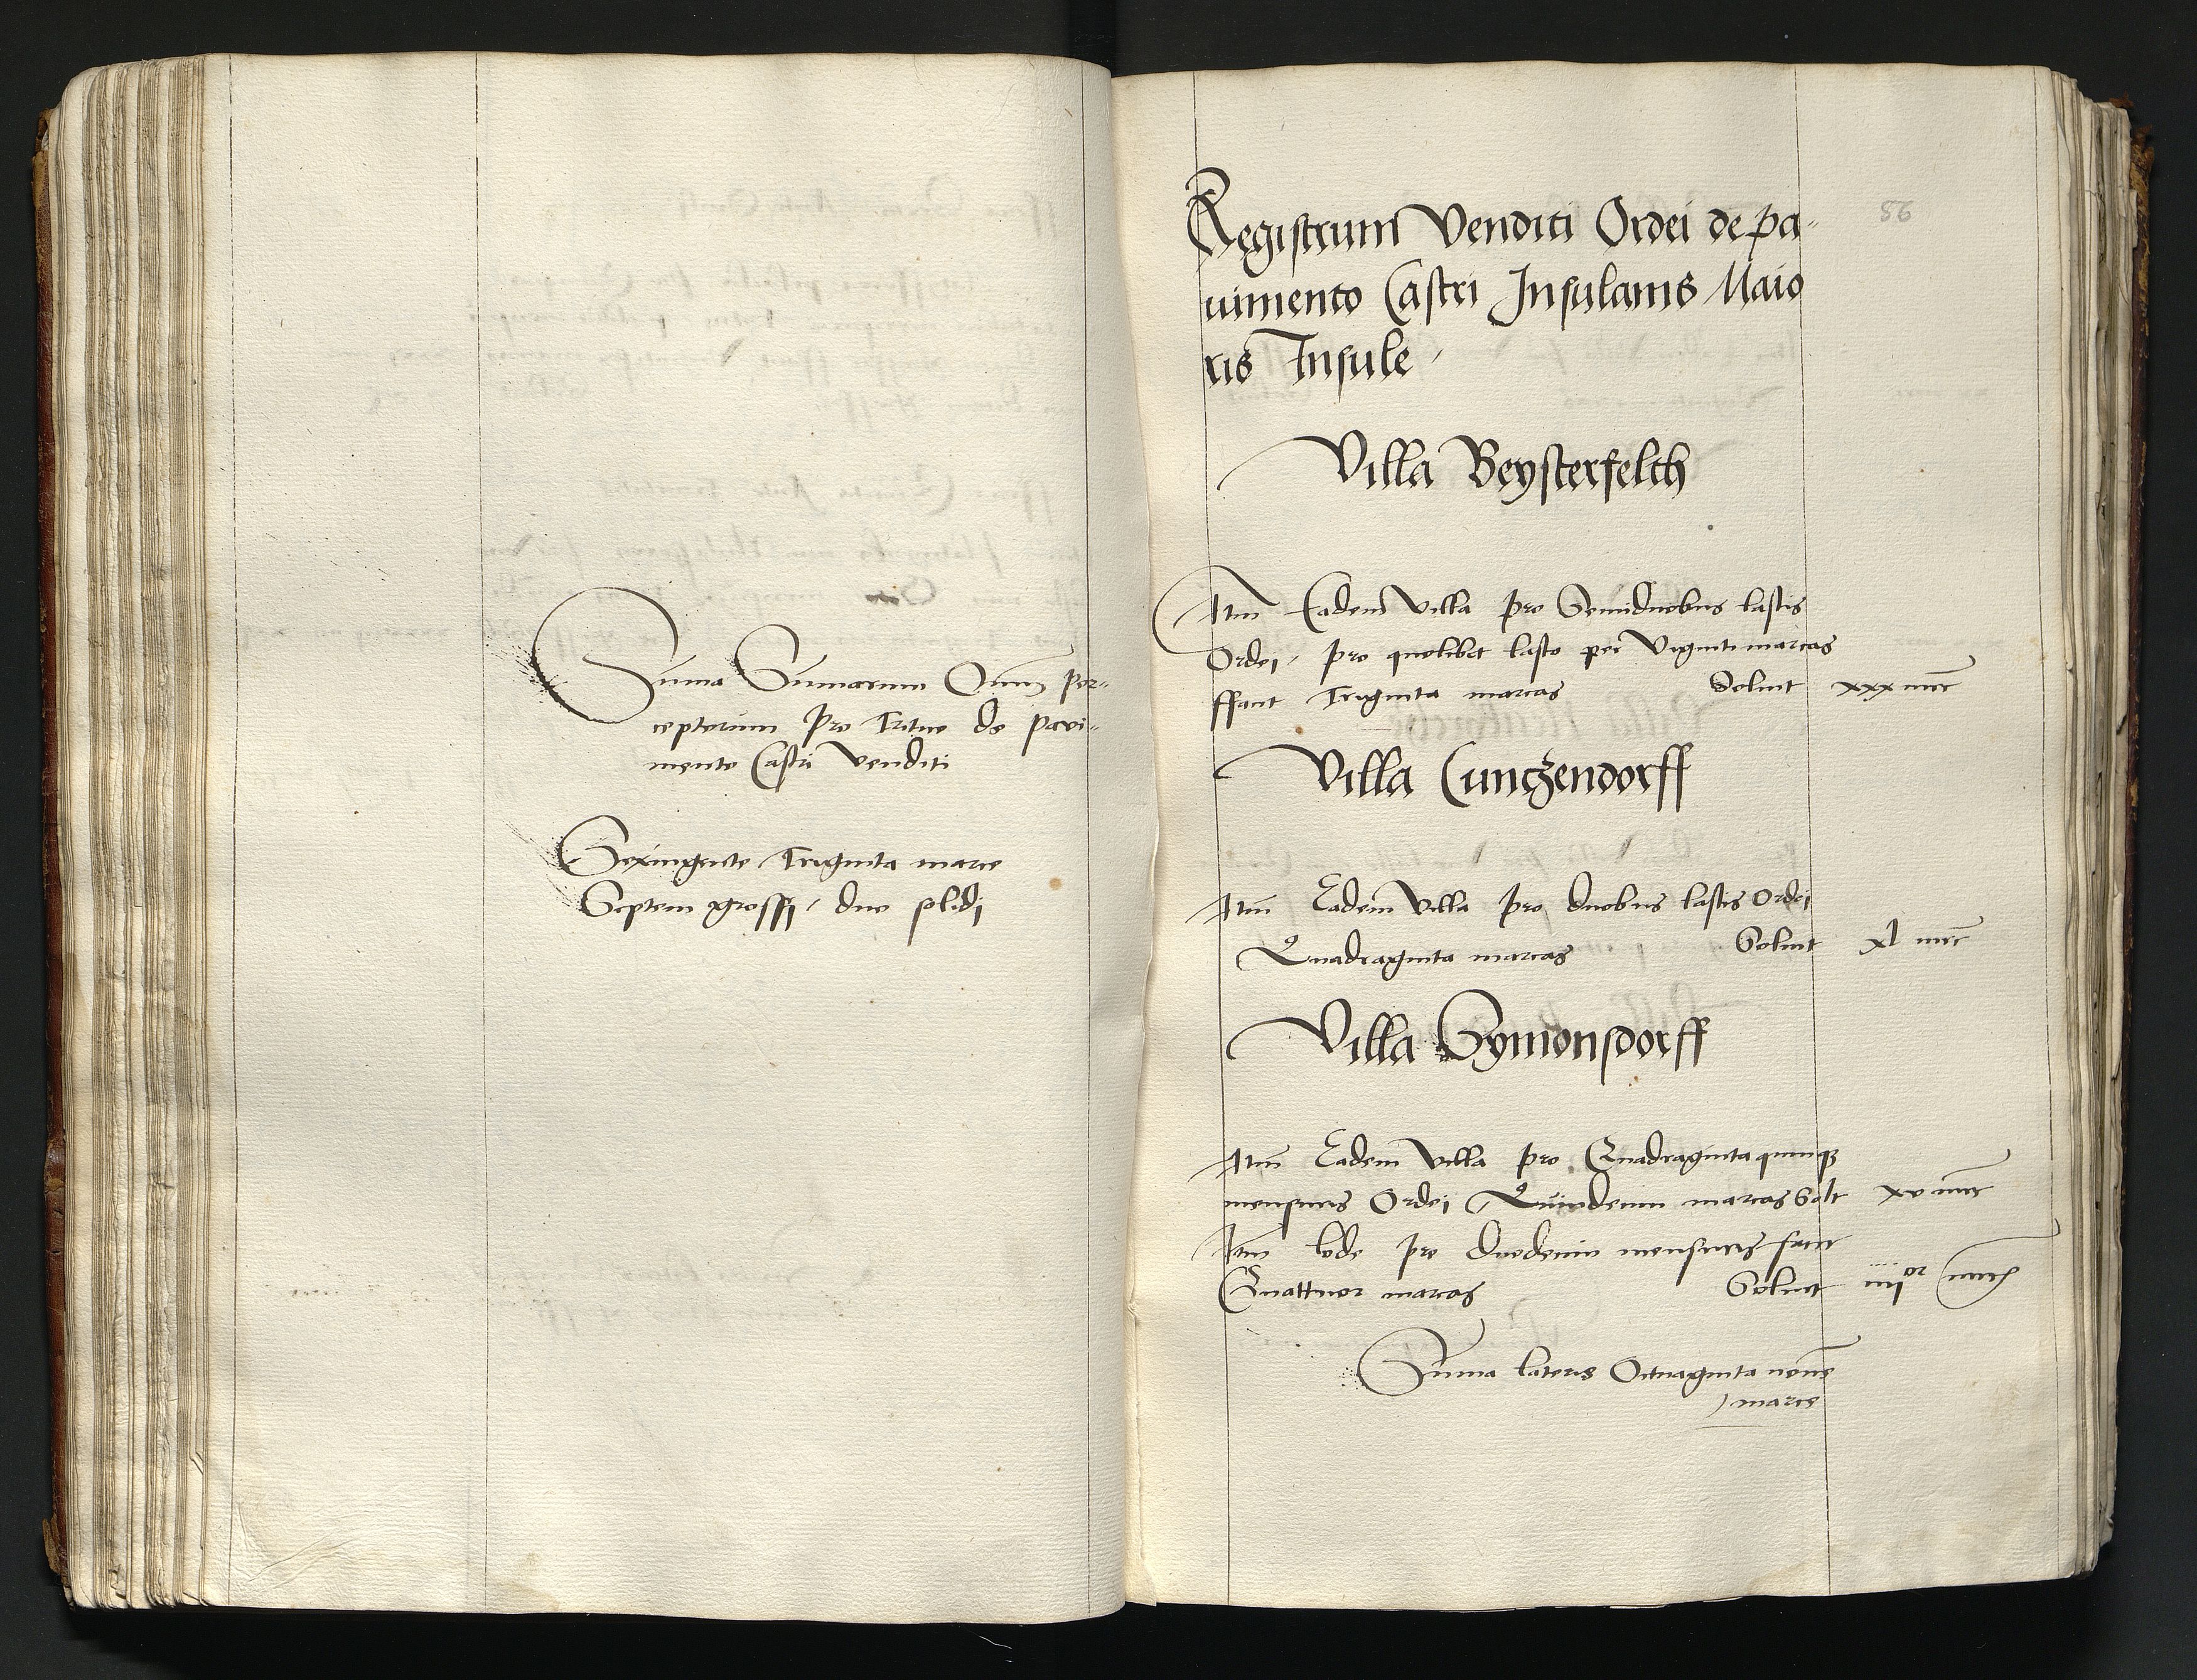 Suma Sumarum Omniu per-
ceptorum Pro Tritico de pavi-
mento Castri venditi
Sexingente Triginta marce
Septem grossi / duo solidi
56
Registrum Venditi Ordei de pa-
uimento Castri Insulanis Maio
ris Insule /
Villa Beysterfelth
Itm Eadem Villa pro Semiduobus lastis
Ordei / pro quolibet lasto per Viginti marcas
ffacit Triginta marcas Soluit xxx mrc
Villa Cunczendorff
Itm Eadem Villa pro duobus lastis Ordei
Quadraginta marcas Soluit xl mrc
Villa Symonsdorff
Itm Eadem Villa pro Quadraginta quinq
mensuris Ordei Quindecim marcas Solt xv mrc
Itm pro duodecim mensuris facit
Quattuor marcas Soluit iiiior mrc
Suma lateris Octuaginta novem
marce